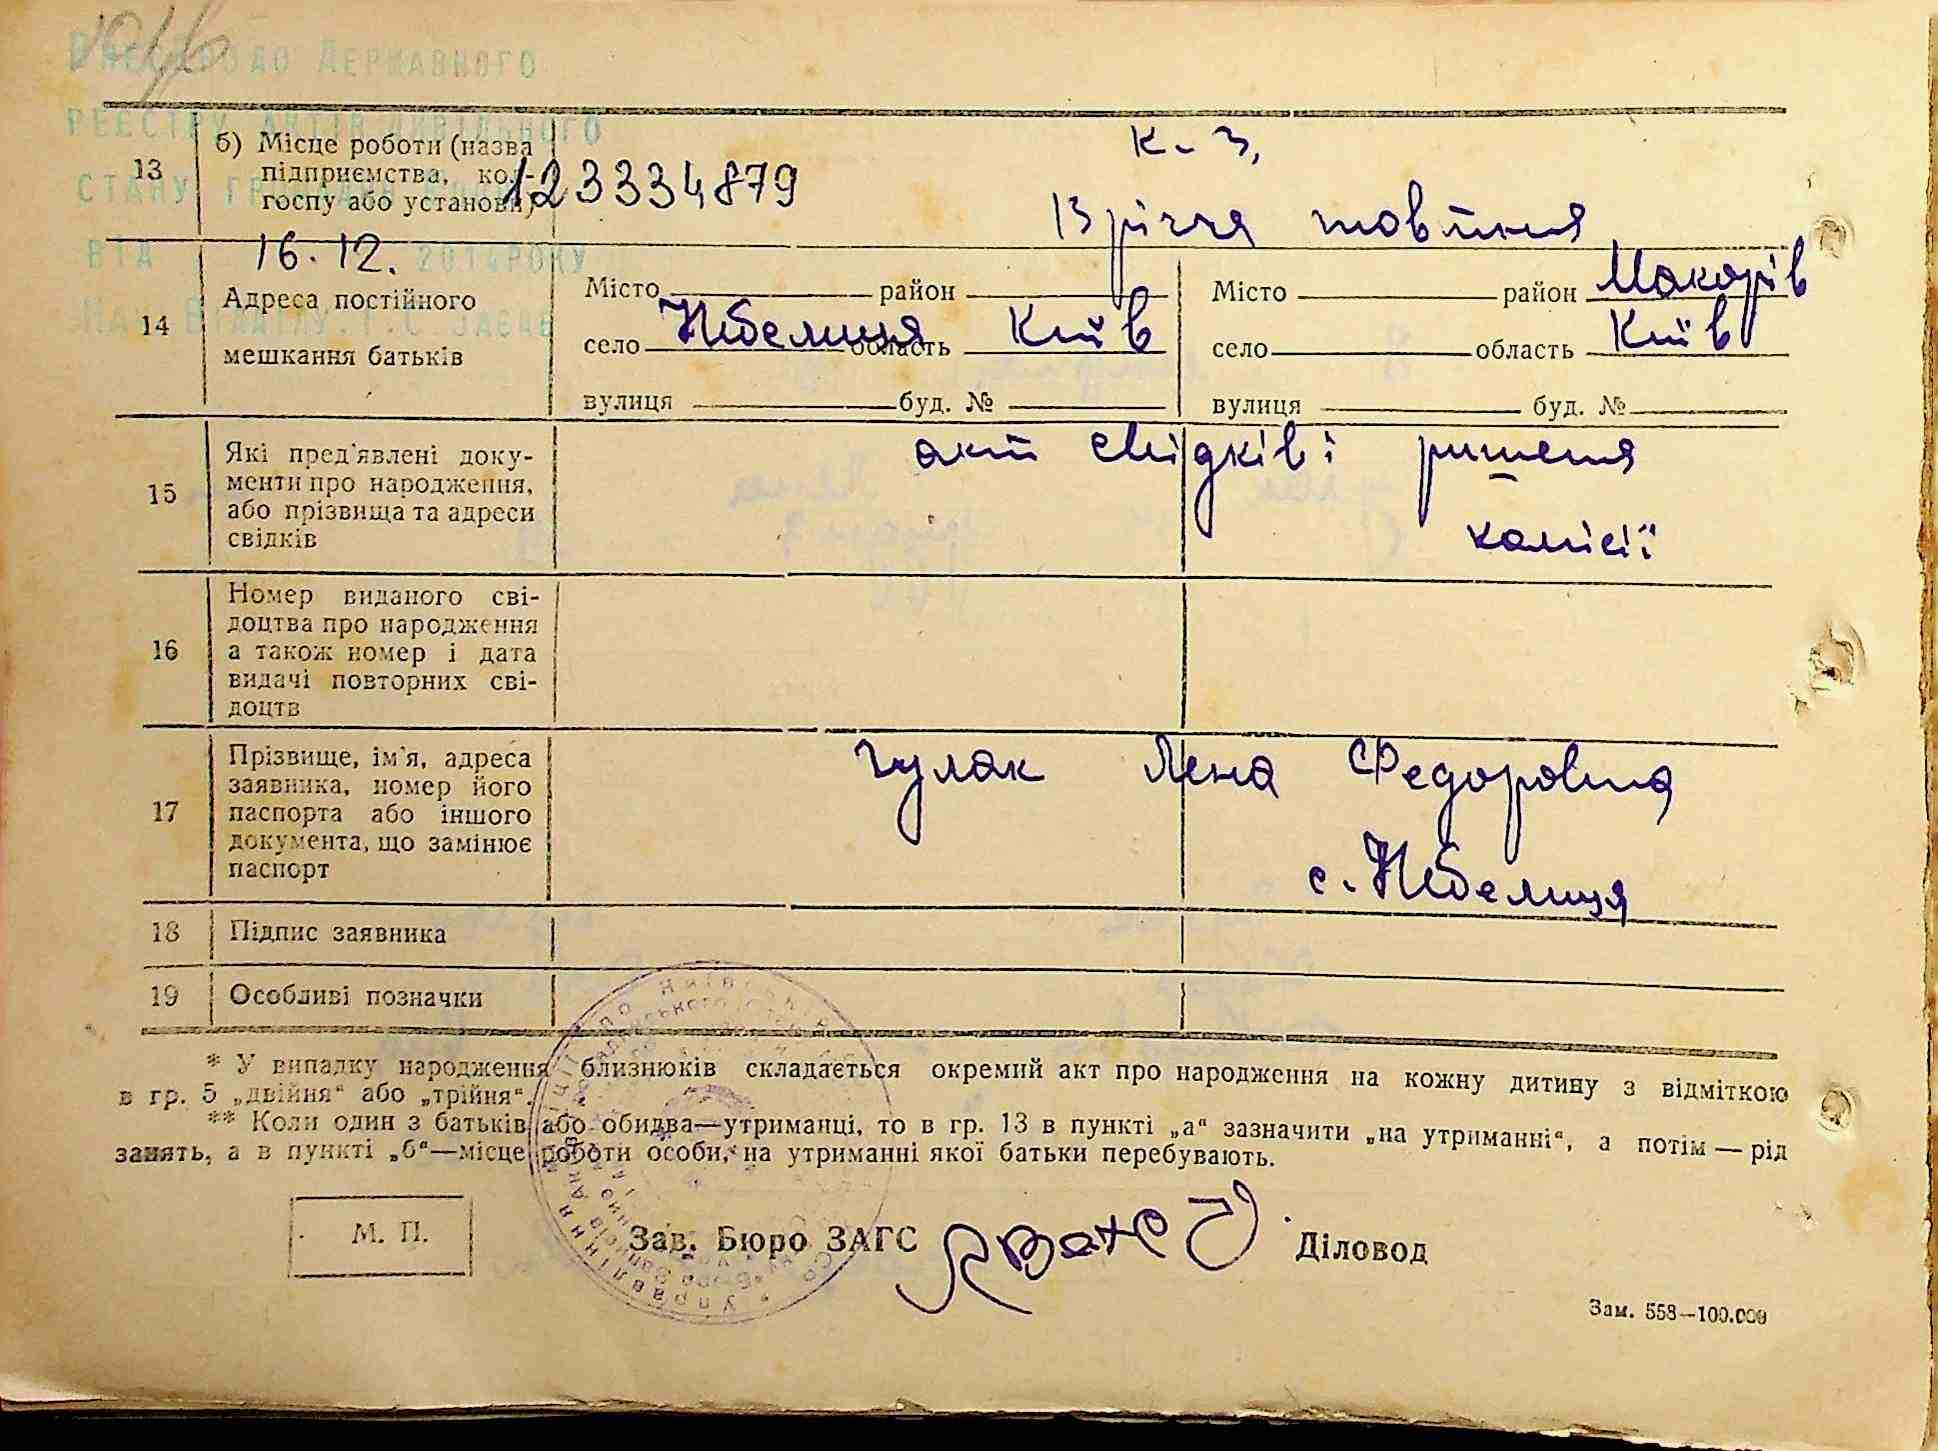 Внесено до Державного
реєстру актів цивільного
стану громадян
від 16.12. 2014 року
13
б) Місце роботи (назва
підприємства, кол-
госпу або установи)
123334879
к-з,
13 річчя жовтня
14
Адреса постійного
мешкання батьків
Місто район
село Небелиця область Київ
вулиця буд. №
Місто район Макарів
село область Київ
вулиця буд. №
15
Які пред'явлені доку-
менти про народження,
або прізвища та адреси
свідків
акт свідків і ришення
комісії
16
Номер виданого сві-
доцтва про народження
а також номер і дата
видачі повторних сві-
доцтв
17
Прізвище, ім'я, адреса
заявника, номер його
паспорта або іншого
документа, що замінює
паспорт
Гулак Лена Федоровна
с. Небелиця
18
Підпис заявника
19
Особливі позначки
* У випадку народження близнюків складається окремий акт про народження на кожну дитину з відміткою
в гр. 5 „двійня“ або „трійня“.
** Коли один з батьків або обидва—утриманці, то в гр. 13 в пункті „а“ зазначити „на утриманні“, а потім — рід
занять, а в пункті „б“—місце роботи особи, на утриманні якої батьки перебувають.
М. П.
Зав. Бюро ЗАГС
Діловод
Зам. 558—100.000